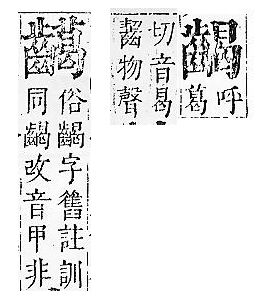 𪙏
呼
葛
切音曷
齧物聲
俗𪙏字舊註訓
同𪙏改音甲非